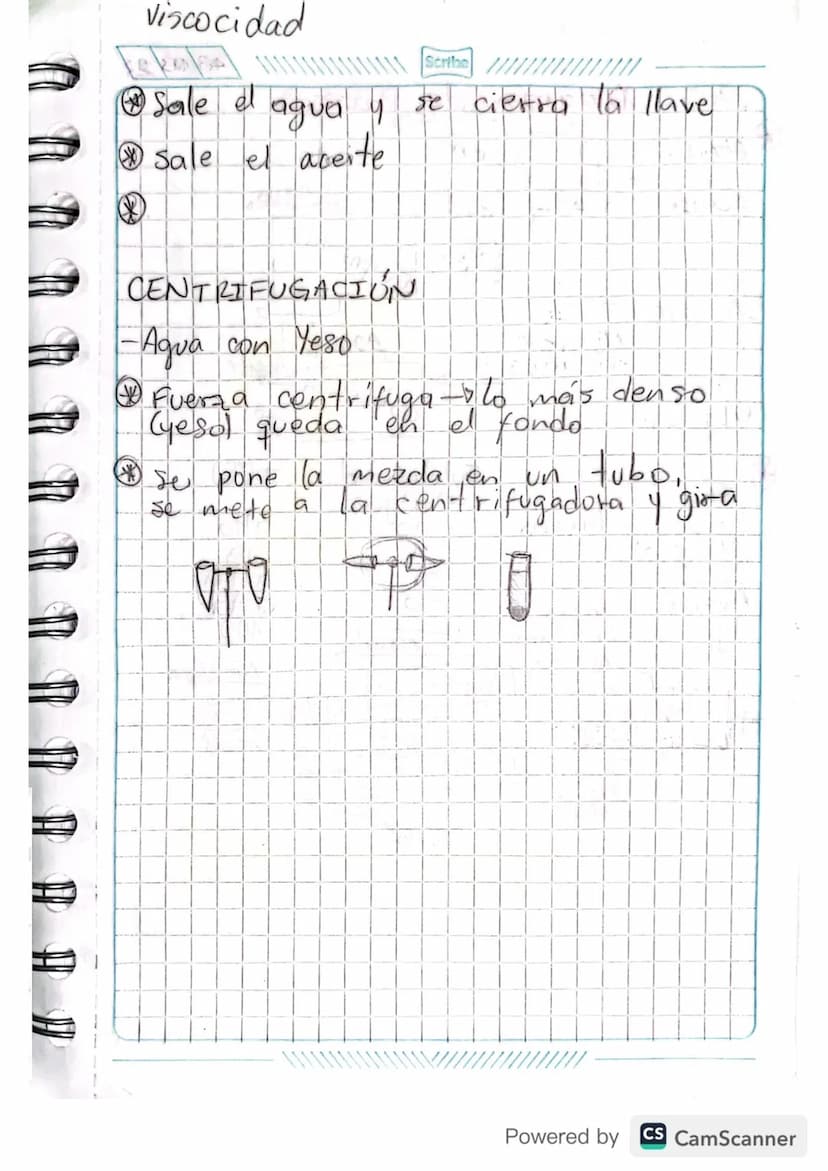 Viscocidad
Scribe
⊛ Sale el agua y se cierra la llave
⊛ sale el aceite
⊛
CENTRIFUGACIÓN
-Agua con Yeso
⊛ Fuerza centrífuga → lo más denso
(yeso) queda en el fondo
⊛ se pone la mezcla en un tubo,
se mete a la centrifugadora y gira
Powered by CS CamScanner